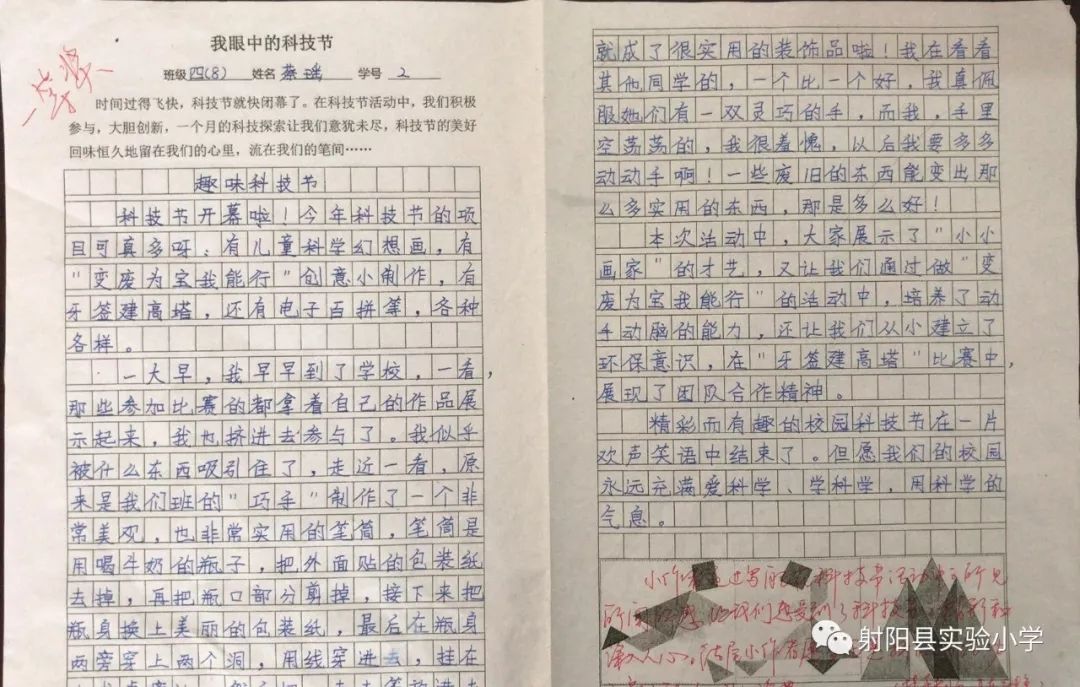 我眼中的科技节
一等奖
班级 四(8) 姓名 蔡瑶 学号 2
时间过得飞快，科技节就快闭幕了。在科技节活动中，我们积极
参与，大胆创新，一个月的科技探索让我们意犹未尽，科技节的美好
回味恒久地留在我们的心里，流在我们的笔间……
趣味科技节
科技节开幕啦！今年科技节的项
目可真多呀：有儿童科学幻想画，有
“变废为宝我能行”创意小制作，有
牙签建高塔，还有电子百拼等，各种
各样。
一大早，我早早到了学校，一看，
那些参加比赛的都拿着自己的作品展
示起来，我也挤进去参与了。我似乎
被什么东西吸引住了，走近一看，原
来是我们班的“巧手”制作了一个非
常美观，也非常实用的笔筒，笔筒是
用喝牛奶的瓶子，把外面贴的包装纸
去掉，再把瓶口部分剪掉，接下来把
瓶身换上美丽的包装纸，最后在瓶身
两旁穿上两个洞，用线穿进去，挂在
就成了很实用的装饰品啦！我在看看
其他同学的，一个比一个好，我真佩
服她们有一双灵巧的手，而我，手里
空荡荡的，我很着愧，以后我要多多
动动手啊！一些废旧的东西能变出那
么多实用的东西，那是多么好！
本次活动中，大家展示了“小小
画家”的才艺，又让我们通过做“变
废为宝我能行”的活动中，培养了动
手动脑的能力，还让我们从小建立了
环保意识，在“牙签建高塔”比赛中，
展现了团队合作精神。
精彩而有趣的校园科技节在一片
欢声笑语中结束了。但愿我们的校园
永远充满爱科学、学科学，用科学的
气息。
小作者通过写 科技节活动中所见
所闻所感 我们感受到了科技
深入人心。 小作者
射阳县实验小学